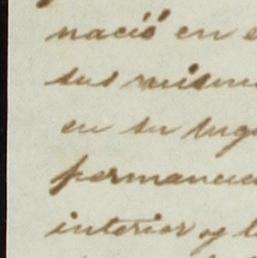 nació en e
sus mism
en su lug
permanec
interior y l